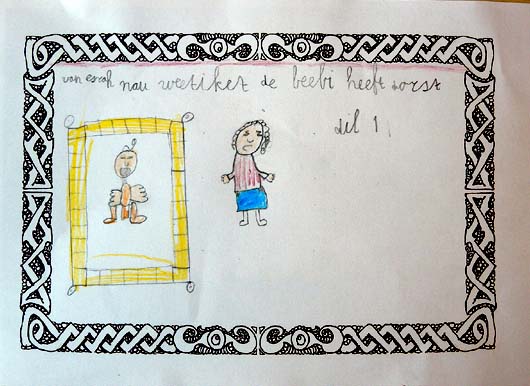 van esrah nau weetiket de beebi heeft dorst
dil 1